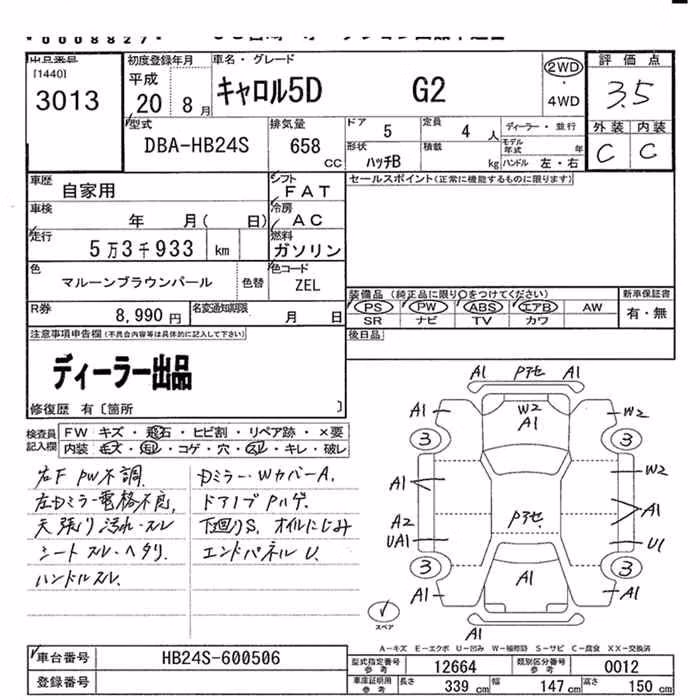 [1440]
3013
初度登録年月
平成
20 8月
車名・グレード
キャロル5D G2
2WD
・
4WD
評価点
3.5
外装 内装
C C
型式
DBA-HB24S
排気量
658
CC
ドア 5
定員 4人
ディーラー・並行
形状
ハッチB
積載 kg
モデル年式 年
ハンドル 左・右
車歴
自家用
シフト
FAT
セールスポイント(正常に機能するものに限ります)
車検
年 月( 日)
冷房
AC
走行
5万3千933 km
燃料
ガソリン
色
マルーンブラウンパール
色替
色コード
ZEL
装備品 (純正品に限り○をつけてください)
PS PW ABS エアB AW
SR ナビ TV カワ
新車保証書
有・無
R券
8,990円
名変通知期限
月 日
後日品
注意事項申告欄(不具合内容等は具体的に記入して下さい)
ディーラー出品
修復歴 有〔箇所 〕
検査員
記入欄
FW キズ・飛石・ヒビ割・リペア跡・×要
内装・キズ・汚れ・コゲ・穴・スレ・キレ・破レ
右F PW不調.
左Dミラー電格不良,
天張り汚れ・スレ
シートスレ・ヘタリ.
ハンドルスレ.
Dミラー・WカバーA.
ドアノブPハゲ.
下廻りS, オイルにじみ
エンドパネルU.
A1 Pアセ A1
A1 W2 A1 W2
3 3
A1 W2
A2 Pアセ A1
UA1 U1
3 3
A1 A1 A1
スペア
A-キズ E-エクボ U-凹み W-補修跡 S-サビ C-腐食 XX-交換済
車台番号
HB24S-600506
登録番号
型式指定番号
参考
12664
類別区分番号
参考
0012
車庫証明用
参考
長さ 339 cm
幅 147 cm
高さ 150 cm